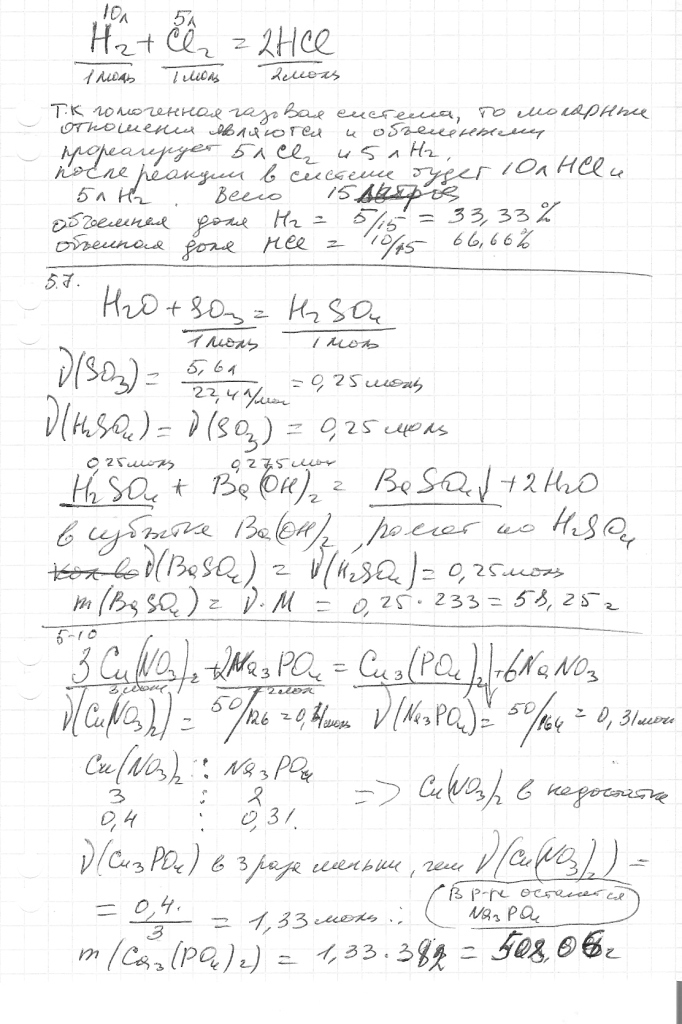 10л 5л
H₂ + Cl₂ = 2HCl
1 моль 1 моль 2 моль
Т.к гомогенная газовая система, то молярные
отношения являются и объемными
прореагирует 5 л Cl₂ и 5 л H₂,
после реакции в системе будет 10 л HCl и
5 л H₂. Всего 15 литров
объемная доля H₂ = 5/15 = 33,33%
объемная доля HCl = 10/15 66,66%
5.7.
H₂O + SO₃ = H₂SO₄
1 моль 1 моль
ν(SO₃) = 5,6л / 22,4 л/мол = 0,25 моль
ν(H₂SO₄) = ν(SO₃) = 0,25 моль
0,25 моль 0,275 мол
H₂SO₄ + Ba(OH)₂ = BaSO₄↓ + 2H₂O
в избытке Ba(OH)₂, расчет по H₂SO₄
кол-во ν(BaSO₄) = ν(H₂SO₄) = 0,25 моль
m(BaSO₄) = ν · M = 0,25 · 233 = 58,25 г
5-10
3Cu(NO₃)₂ + 2Na₃PO₄ = Cu₃(PO₄)₂↓ + 6NaNO₃
3 мол 2 мол
ν(Cu(NO₃)₂) = 50/126 = 0,4 моль ν(Na₃PO₄) = 50/164 = 0,31 мол
Cu(NO₃)₂ : Na₃PO₄
3 : 2 => Cu(NO₃)₂ в недостатке
0,4 : 0,31.
ν(Cu₃PO₄) в 3 раза меньши, чем ν(Cu(NO₃)₂) =
= 0,4. / 3 = 1,33 моль ∴ В р-ре останется
Na₃PO₄
m(Ca₃(PO₄)₂) = 1,33 · 382 = 508,06 г